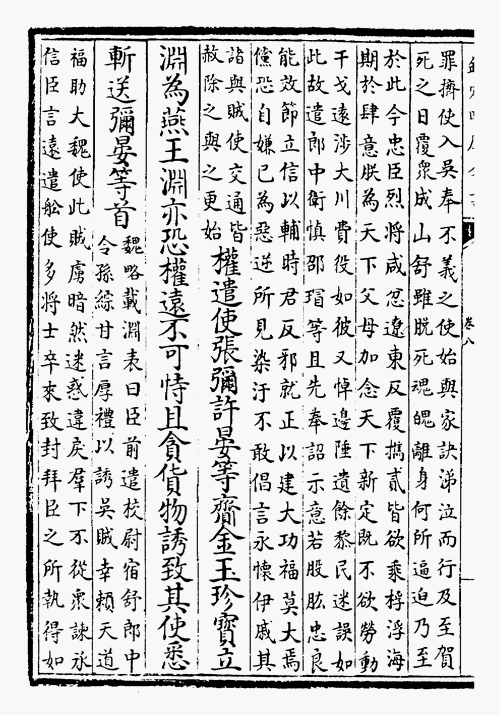 卷八
罪擠使入吳奉不義之使始與家訣涕泣而行及至賀
死之日覆衆成山舒雖脫死魂魄離身何所逼迫乃至
於此今忠臣烈將咸忿遼東反覆攜貳皆欲乘桴浮海
期於肆意朕為天下父母加念天下新定既不欲勞動
干戈遠涉大川費役如彼又悼邊陲遺餘黎民迷誤如
此故遣郎中衛慎邵瑁等且先奉詔示意若股肱忠良
能效節立信以輔時君反邪就正以建大功福莫大焉
儻恐自嫌已為惡逆所見染汙不敢倡言永懷伊戚其
諸與賊使交通皆
赦除之與之更始
權遣使張彌許晏等齎金玉珍寶立
淵為燕王淵亦恐權遠不可恃且貪貨物誘致其使悉
斬送彌晏等首
魏略載淵表曰臣前遣校尉宿舒郎中
令孫綜甘言厚禮以誘吳賊幸賴天道
福助大魏使此賊虜暗然迷惑違戾羣下不從衆諫承
信臣言遠遣舩使多將士卒來致封拜臣之所執得如